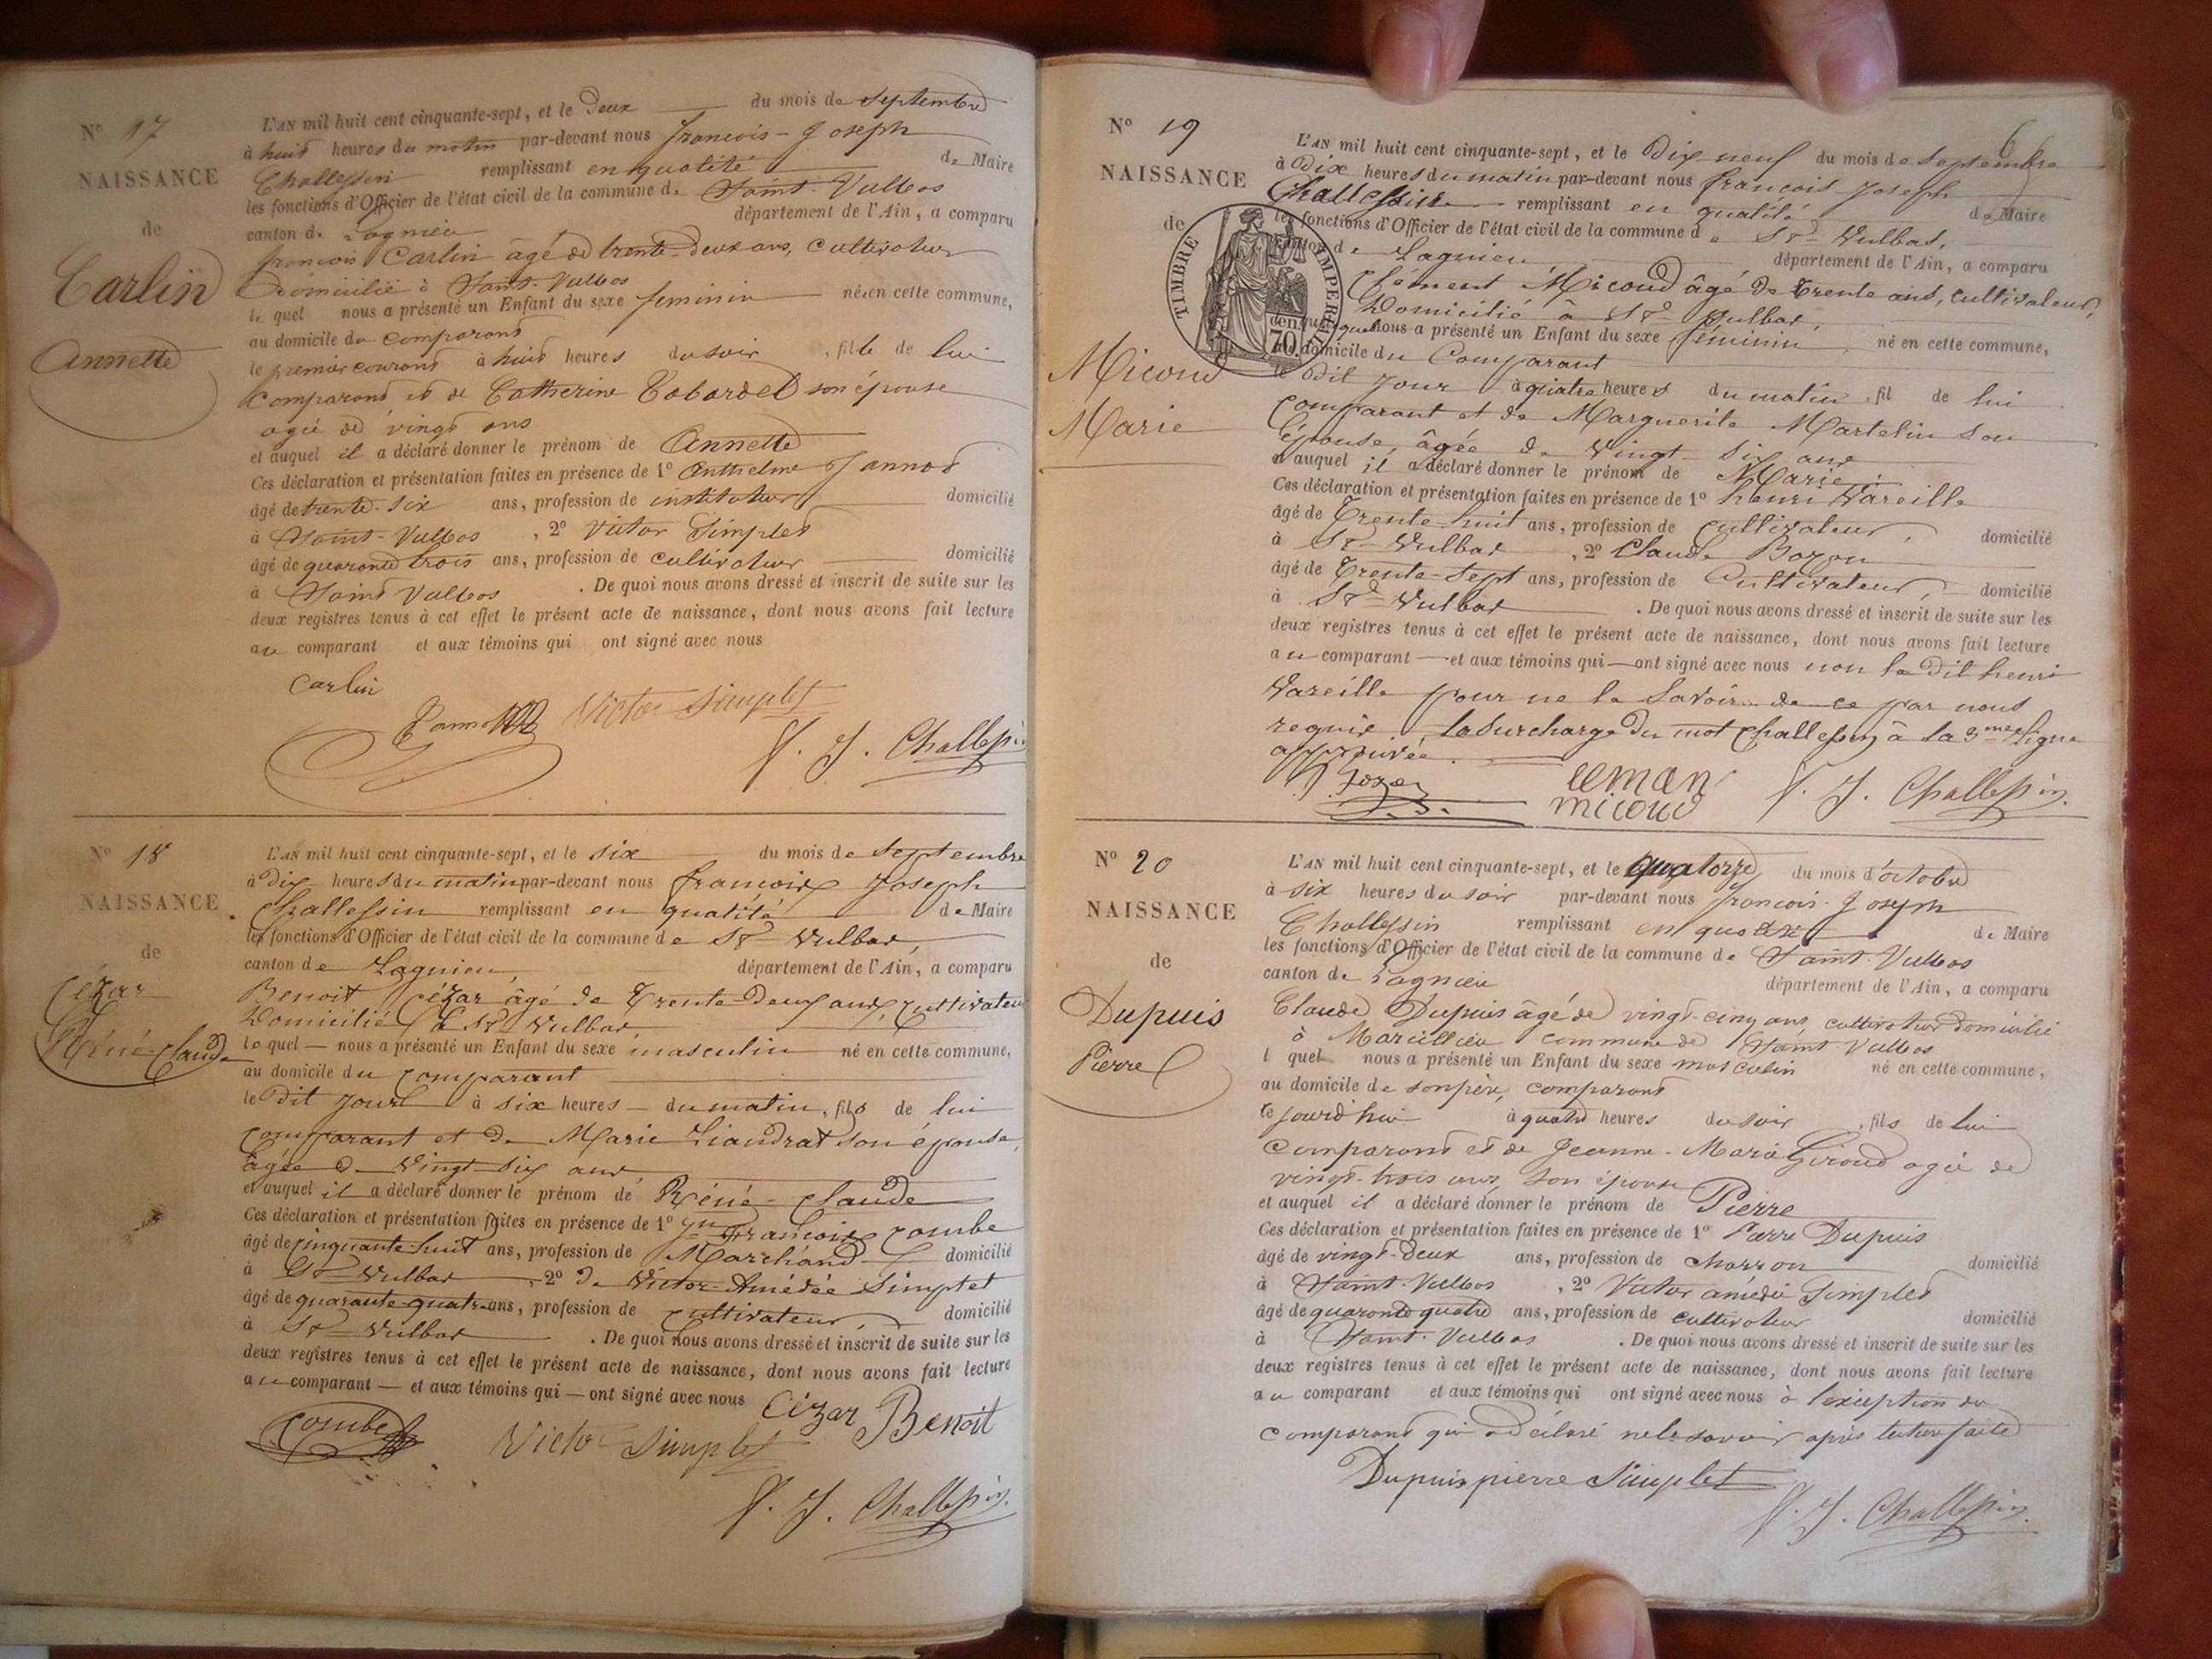 N° 17
NAISSANCE
de
Carlin
Annette
L'AN mil huit cent cinquante-sept, et le Deux du mois de septembre
à huit heures du matin par-devant nous françois-Joseph
Challessin remplissant en qualité de Maire
les fonctions d'Officier de l'état civil de la commune de Saint-Vulbas
canton de Lagnieu département de l'Ain, a comparu
françois Carlin âgé de trente-deux ans, cultivateur
Domicilié à Saint-Vulbas
le quel nous a présenté un Enfant du sexe feminin né en cette commune,
au domicile du comparant
le premier courant à huit heures du soir, fille de lui
comparant et de Catherine Cobardel son épouse
agée de vingt ans
et auquel il a déclaré donner le prénom de Annette
Ces déclaration et présentation faites en présence de 1° Anthelme Jannot
âgé de trente-six ans, profession de instituteur domicilié
à Saint-Vulbas, 2° Victor Simplet
âgé de quarante trois ans, profession de cultivateur domicilié
à Saint Vulbas. De quoi nous avons dressé et inscrit de suite sur les
deux registres tenus à cet effet le présent acte de naissance, dont nous avons fait lecture
au comparant et aux témoins qui ont signé avec nous
Carlin
Jannot Victor Simplet
f. J. Challessin
N° 18
NAISSANCE
de
Cézar
Réné-Claude
L'AN mil huit cent cinquante-sept, et le six du mois de septembre
à dix heures du matin par-devant nous françois Joseph
Challessin remplissant en qualité de Maire
les fonctions d'Officier de l'état civil de la commune de St-Vulbas,
canton de Lagnieu, département de l'Ain, a comparu
Benoit Cézar âgé de Trente-deux ans, cultivateur
Domicilié à St-Vulbas,
le quel nous a présenté un Enfant du sexe masculin né en cette commune,
au domicile du comparant
le Dit jour à six heures du matin, fils de lui
comparant et de Marie Liaudrat son épouse,
âgée de Vingt-six ans
et auquel il a déclaré donner le prénom de Réné-Claude
Ces déclaration et présentation faites en présence de 1° françois Combe
âgé de cinquante-huit ans, profession de Marchand domicilié
à St-Vulbas, 2° de Victor-Amédée Simplet
âgé de quarante-quatre ans, profession de cultivateur, domicilié
à St-Vulbas. De quoi nous avons dressé et inscrit de suite sur les
deux registres tenus à cet effet le présent acte de naissance, dont nous avons fait lecture
au comparant et aux témoins qui ont signé avec nous Cézar Benoit
Combe Victor Simplet
f. J. Challessin
6
N° 19
NAISSANCE
de
Micoud
Marie
TIMBRE IMPERIAL
70
L'AN mil huit cent cinquante-sept, et le Dix-neuf du mois de septembre
à Dix heures du matin par-devant nous françois Joseph
Challessin remplissant en qualité de Maire
les fonctions d'Officier de l'état civil de la commune de St-Vulbas,
canton de Lagnieu département de l'Ain, a comparu
Clément Micoud âgé de trente ans, cultivateur,
Domicilié à St-Vulbas,
quel nous a présenté un Enfant du sexe féminin, né en cette commune,
au domicile du Comparant
le Dit jour à quatre heures du matin, fil de lui
comparant et de Marguerite Martelin son
épouse, âgée de Vingt-six ans
et auquel il a déclaré donner le prénom de Marie.
Ces déclaration et présentation faites en présence de 1° henri Vareille
âgé de Trente-huit ans, profession de cultivateur, domicilié
à St-Vulbas, 2° Claude Bozon
âgé de Trente-Sept ans, profession de Cultivateur, domicilié
à St-Vulbas. De quoi nous avons dressé et inscrit de suite sur les
deux registres tenus à cet effet le présent acte de naissance, dont nous avons fait lecture
au comparant et aux témoins qui ont signé avec nous non le Dit henri
Vareille pour ne le Savoir de ce par nous
requis. La Surcharge du mot Challessin à la 3me ligne
approuvée.
cleman
micoud f. J. Challessin
N° 20
NAISSANCE
de
Dupuis
Pierre
L'AN mil huit cent cinquante-sept, et le quatorze du mois d'octobre
à six heures du soir par-devant nous françois-Joseph
Challessin remplissant en qualité de Maire
les fonctions d'Officier de l'état civil de la commune de Saint-Vulbas
canton de Lagnieu département de l'Ain, a comparu
Claude Dupuis âgé de vingt-cinq ans, cultivateur domicilié
à Marcillieu commune de Saint-Vulbas
l quel nous a présenté un Enfant du sexe masculin né en cette commune,
au domicile de son père, comparant
le jourd'hui à quatre heures du soir, fils de lui
comparant et de Jeanne-Marie Giroud agée de
vingt-trois ans, son épouse
et auquel il a déclaré donner le prénom de Pierre
Ces déclaration et présentation faites en présence de 1° Pierre Dupuis
âgé de vingt-deux ans, profession de charron domicilié
à Saint-Vulbas, 2° Victor amédée Simplet
âgé de quarante quatre ans, profession de cultivateur domicilié
à Saint-Vulbas. De quoi nous avons dressé et inscrit de suite sur les
deux registres tenus à cet effet le présent acte de naissance, dont nous avons fait lecture
au comparant et aux témoins qui ont signé avec nous à l'exception du
comparant qui a déclaré ne le savoir après lecture faite
Dupuis pierre Simplet
f. J. Challessin